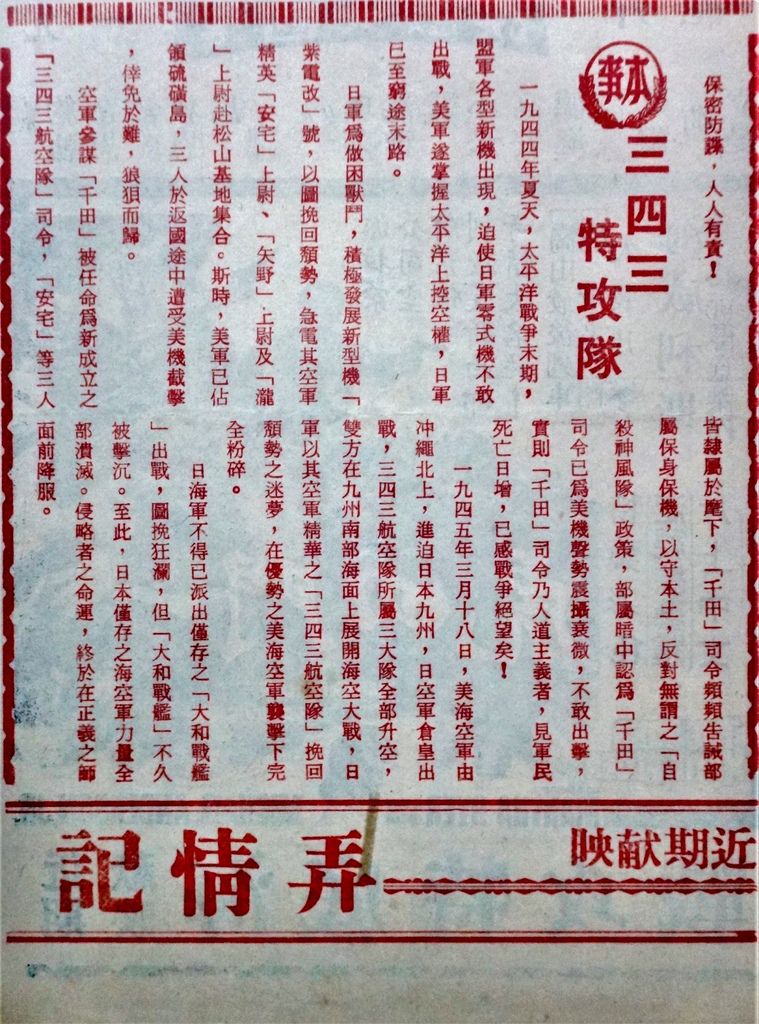 保密防諜，人人有責！
本事
三四三
特攻隊
一九四四年夏天，太平洋戰爭末期，
盟軍各型新機出現，迫使日軍零式機不敢
出戰，美軍遂掌握太平洋上控空權，日軍
已至窮途末路。
日軍爲做困獸鬥，積極發展新型機「
紫電改」號，以圖挽回頹勢，急電其空軍
精英「安宅」上尉、「矢野」上尉及「瀧
」上尉赴松山基地集合。斯時，美軍已佔
領硫磺島，三人於返國途中遭受美機截擊
，倖免於難，狼狽而歸。
空軍參謀「千田」被任命爲新成立之
「三四三航空隊」司令，「安宅」等三人
皆隸屬於麾下，「千田」司令頻頻告誡部
屬保身保機，以守本土，反對無謂之「自
殺神風隊」政策，部屬暗中認爲「千田」
司令已爲美機聲勢震攝衰微，不敢出擊，
實則「千田」司令乃人道主義者，見軍民
死亡日增，已感戰爭絕望矣！
一九四五年三月十八日，美海空軍由
沖繩北上，進迫日本九州，日空軍倉皇出
戰，三四三航空隊所屬三大隊全部升空，
雙方在九州南部海面上展開海空大戰，日
軍以其空軍精華之「三四三航空隊」挽回
頹勢之迷夢，在優勢之美海空軍襲擊下完
全粉碎。
日海軍不得已派出僅存之「大和戰艦
」出戰，圖挽狂瀾，但「大和戰艦」不久
被擊沉。至此，日本僅存之海空軍力量全
部潰滅。侵略者之命運，終於在正義之師
面前降服。
近期献映
弄情記